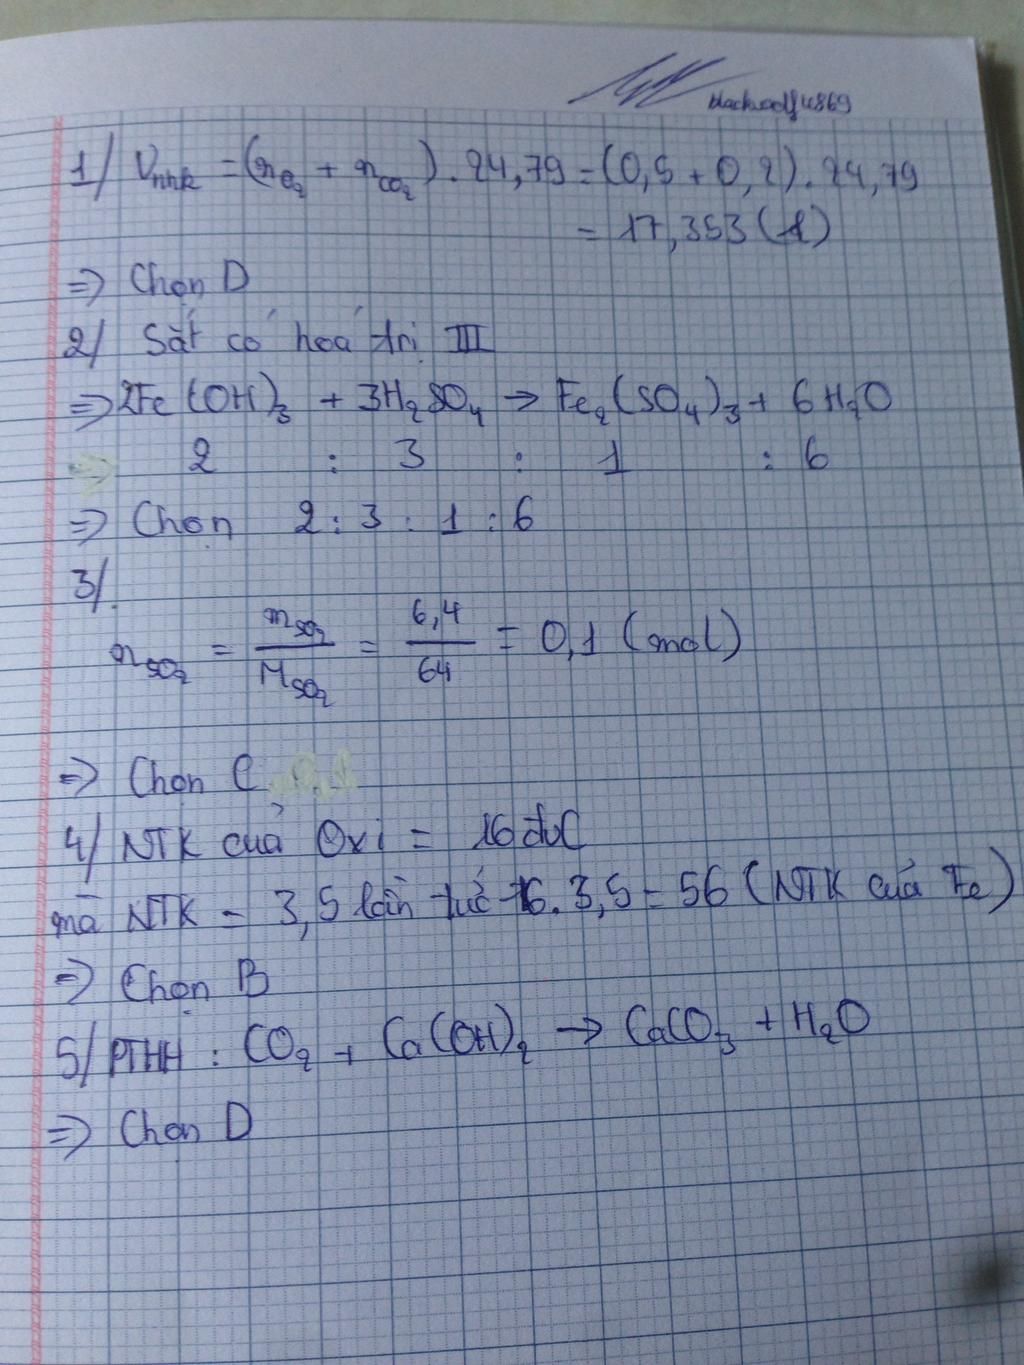 1/ Vhhk = (nO₂ + nCO₂). 24,79 = (0,5 + 0,2). 24,79
= 17,353 (l)
=> Chọn D
2/ Sắt có hoá trị III
=> 2Fe(OH)₃ + 3H₂SO₄ → Fe₂(SO₄)₃ + 6H₂O
2 : 3 : 1 : 6
=> Chọn 2 : 3 : 1 : 6
3/.
nSO₂ = mSO₂/MSO₂ = 6,4/64 = 0,1 (mol)
=> Chọn C
4/ NTK của Oxi = 16 đvC
mà NTK = 3,5 lần tức 16. 3,5 = 56 (NTK của Fe)
=> Chọn B
5/ PTHH : CO₂ + Ca(OH)₂ → CaCO₃ + H₂O
=> Chọn D